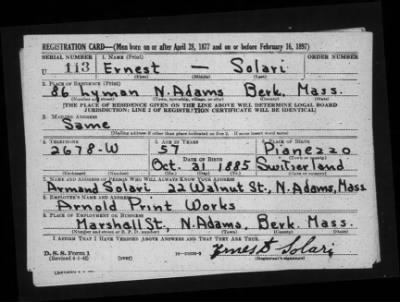 REGISTRATION CARD—(Men born on or after April 28, 1877 and on or before February 16, 1897)
SERIAL NUMBER 1. NAME (Print)
U 113 Ernest — Solari
(First) (Middle) (Last)
2. PLACE OF RESIDENCE (Print)
86 Lyman N. Adams Berk. Mass.
(Number and street) (Town, township, village, or city) (County) (State)
[THE PLACE OF RESIDENCE GIVEN ON THE LINE ABOVE WILL DETERMINE LOCAL BOARD
JURISDICTION; LINE 2 OF REGISTRATION CERTIFICATE WILL BE IDENTICAL]
3. MAILING ADDRESS
Same
[Mailing address if other than place indicated on line 2. If same insert word same]
4. TELEPHONE 5. AGE IN YEARS 6. PLACE OF BIRTH
2678-W 57 Pianezzo
DATE OF BIRTH (Town or county)
Oct. 31 1885 Switzerland
(Mo.) (Day) (Yr.) (State or country)
7. NAME AND ADDRESS OF PERSON WHO WILL ALWAYS KNOW YOUR ADDRESS
Armand Solari 22 Walnut St., N. Adams, Mass
8. EMPLOYER'S NAME AND ADDRESS
Arnold Print Works
9. PLACE OF EMPLOYMENT OR BUSINESS
Marshall St., N. Adams, Berk. Mass.
(Number and street or R. F. D. number) (Town) (County) (State)
I AFFIRM THAT I HAVE VERIFIED ABOVE ANSWERS AND THAT THEY ARE TRUE.
D. S. S. Form 1 Ernest Solari
(Revised 4-1-42) (Registrant's signature)